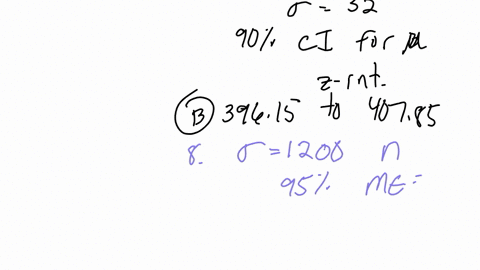 σ = 32
90% CI for μ
z-int.
(B) 396.15 to 407.85
8. σ = 1200 n
95% ME =